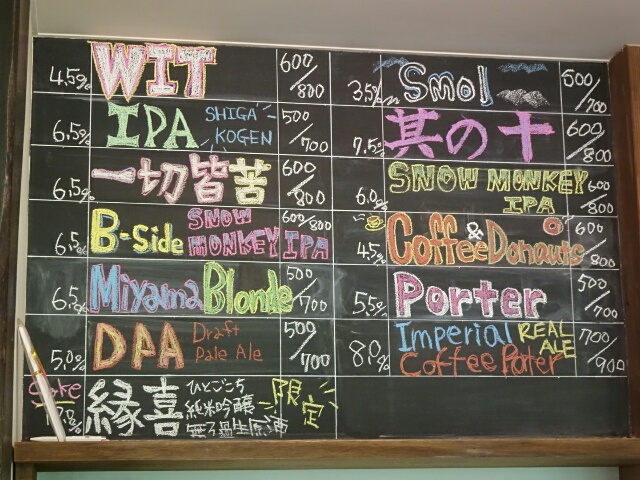 4.5% WIT 600/800
6.5% IPA SHIGA KOGEN 500/700
6.5% 一切皆苦 600/800
6.5% B-Side SNOW MONKEY IPA 600/800
6.5% Miyama Blonde 500/700
5.0% DPA Draft Pale Ale 500/700
Sake 縁喜 ひとごこち 純米吟醸 無ろ過生原酒 限定
3.5% Smol 500/700
7.5% 其の十 600/800
6.0% SNOW MONKEY IPA 600/800
4.5% Coffee & Donauts 600/800
5.5% Porter 500/700
8.0% Imperial Coffee Porter REAL ALE 700/900